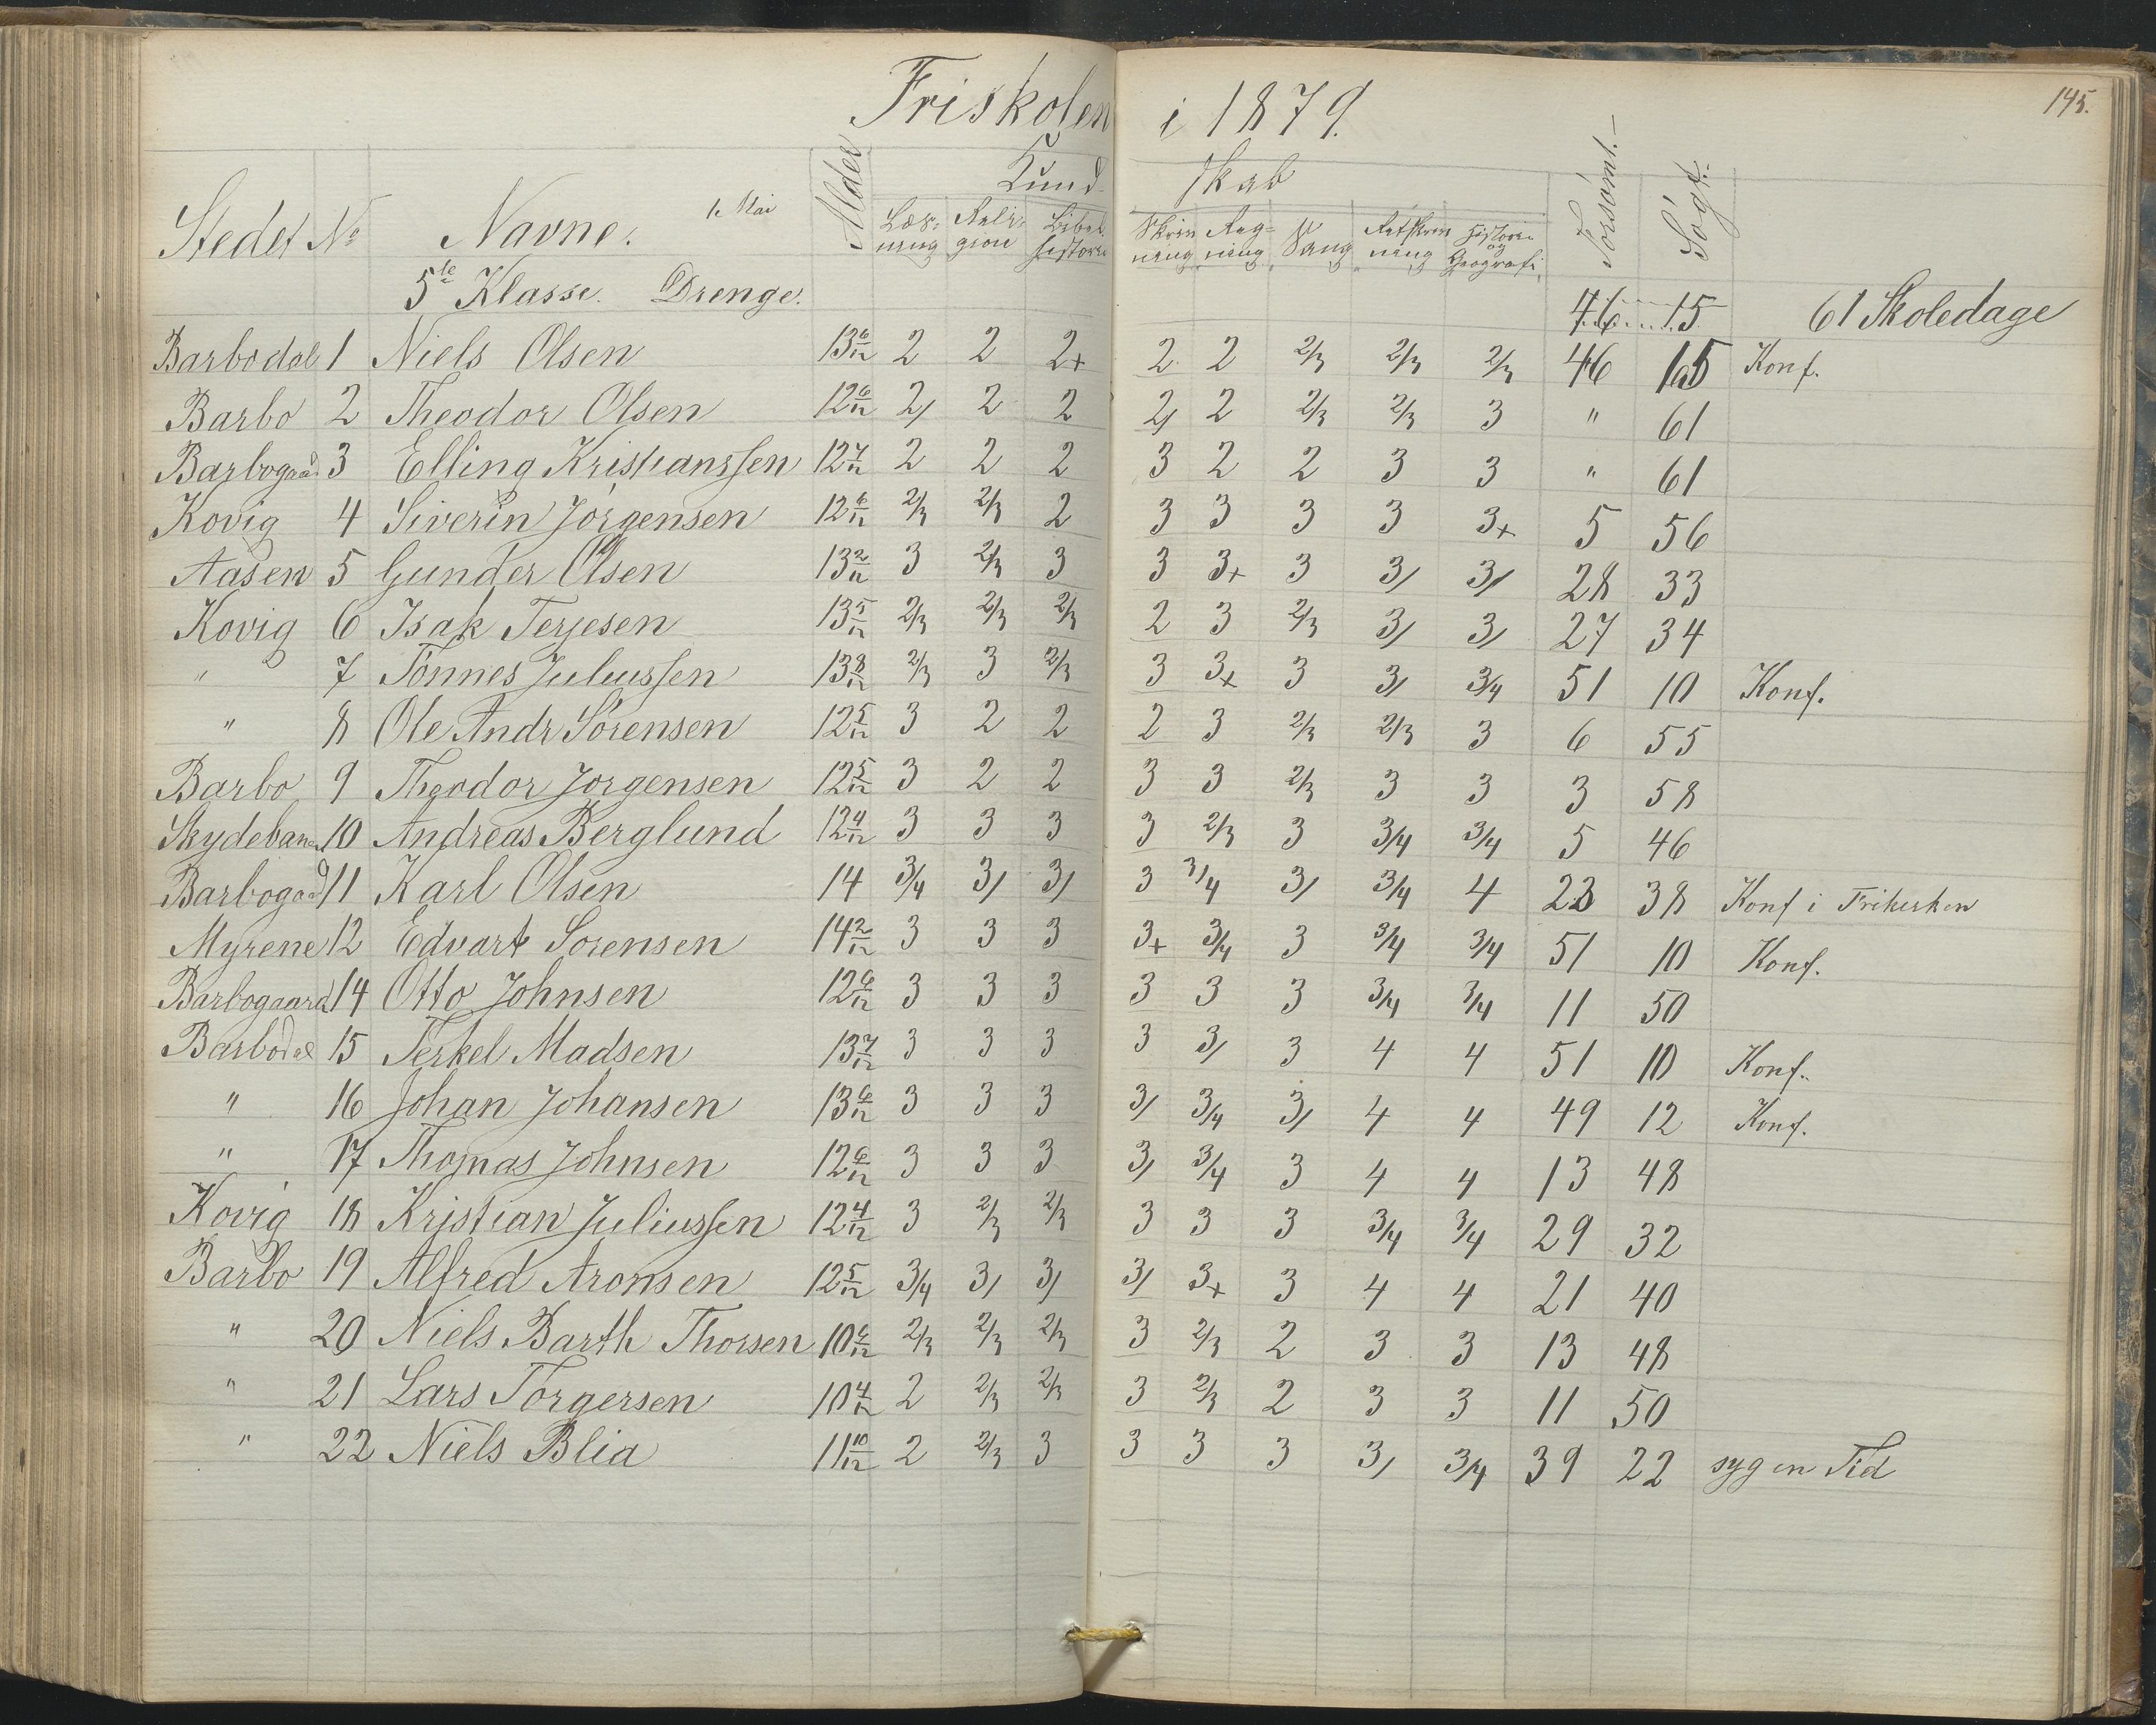 Friskolen i 1879.
145.
Stedet No Navne. 1. Mai Alder Kund- skab Forsømt. Søgt.
Læs- ning Reli- gion Bibel- historie Skriv ning Reg- ning Sang Retskriv ning Historie og Geografi
5te Klasse. Drenge.
46 15 61 Skoledage
Barbodal 1 Niels Olsen 13 6/12 2 2 2+ 2 2 2/3 2/3 2/3 46 15 Konf.
Barbo 2 Theodor Olsen 12 6/12 2/ 2 2 2/ 2 2/3 2/3 3 " 61
Barbogaard 3 Elling Kristianssen 12 7/12 2 2 2 3 2 2 3 3 " 61
Kovig 4 Siverin Jörgensen 12 6/12 2/3 2/3 2 3 3 3 3 3+ 5 56
Aasen 5 Gunder Olsen 13 2/12 3 2/3 3 3 3+ 3 3/ 3/ 28 33
Kovig 6 Isak Terjesen 13 5/12 2/3 2/3 2/3 2 3 2/3 3/ 3/ 27 34
" 7 Tönnes Juliussen 13 8/12 2/3 3 2/3 3 3+ 3 3/ 3/4 51 10 Konf.
" 8 Ole Andr Sörensen 12 5/12 3 2 2 2 3 2/3 2/3 3 6 55
Barbo 9 Theodor Jorgensen 12 5/12 3 2 2 3 3 2/3 3 3 3 58
Skydebanen 10 Andreas Berglund 12 4/12 3 3 3 3 2/3 3 3/4 3/4 5 46
Barbogaard 11 Karl Olsen 14 3/4 3/ 3/ 3 3/4 3/ 3/4 4 23 38 Konf i Frikirken
Myrene 12 Edvart Sorensen 14 2/12 3 3 3 3+ 3/4 3 3/4 3/4 51 10 Konf.
Barbogaard 14 Otto Johnsen 12 6/12 3 3 3 3 3 3 3/4 3/4 11 50
Barbodal 15 Terkel Madsen 13 7/12 3 3 3 3 3/ 3 4 4 51 10 Konf.
" 16 Johan Johansen 13 6/12 3 3 3 3/ 3/4 3/ 4 4 49 12 Konf.
" 17 Thomas Johnsen 12 6/12 3 3 3 3/ 3/4 3 4 4 13 48
Kovig 18 Kristian Juliussen 12 4/12 3 2/3 2/3 3 3 3 3/4 3/4 29 32
Barbo 19 Alfred Aronsen 12 5/12 3/4 3/ 3/ 3/ 3+ 3 4 4 21 40
" 20 Niels Barth Thorsen 10 6/12 2/3 2/3 2/3 3 2/3 2 3 3 13 48
" 21 Lars Torgersen 10 4/12 2 2/3 2/3 3 2/3 2 3 3 11 50
" 22 Niels Blia 11 10/12 2 2/3 3 3 3 3 3/ 3/4 39 22 syg en Tid